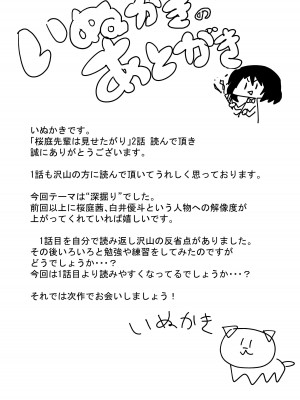 いぬかきの
あとがき
いぬかきです。
「桜庭先輩は見せたがり」2話 読んで頂き
誠にありがとうございます。
1話も沢山の方に読んで頂いてうれしく思っております。
今回テーマは“深掘り”でした。
前回以上に桜庭茜、白井優斗という人物への解像度が
上がってくれていれば嬉しいです。
1話目を自分で読み返し沢山の反省点がありました。
その後いろいろと勉強や練習をしてみたのですが
どうでしょうか・・・？
今回は1話目より読みやすくなってるでしょうか・・・？
それでは次作でお会いしましょう！
いぬかき